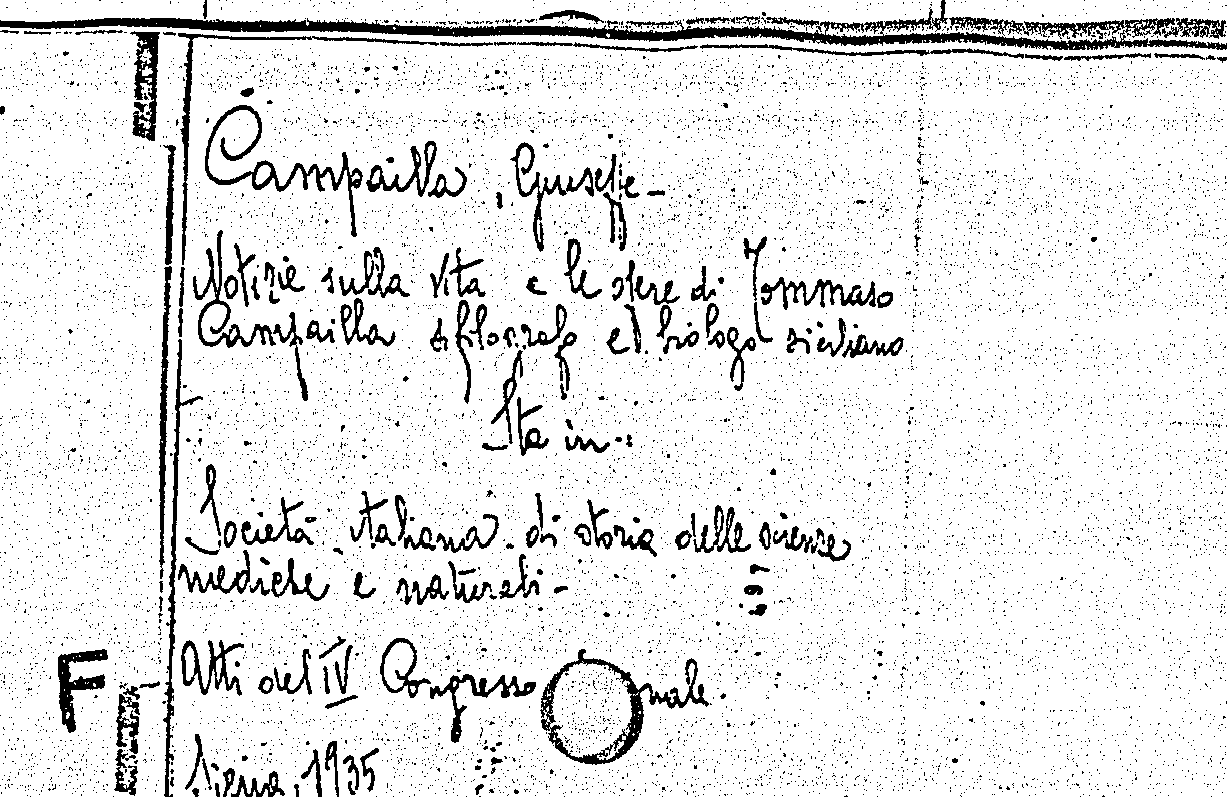 Campailla, Giuseppe -
Notizie sulla vita e le opere di Tommaso
Campailla filosofo ed biologo siciliano
Sta in:
Società italiana di storia delle scienze
mediche e naturali -
Atti del IV Congresso nale.
Siena, 1935
F